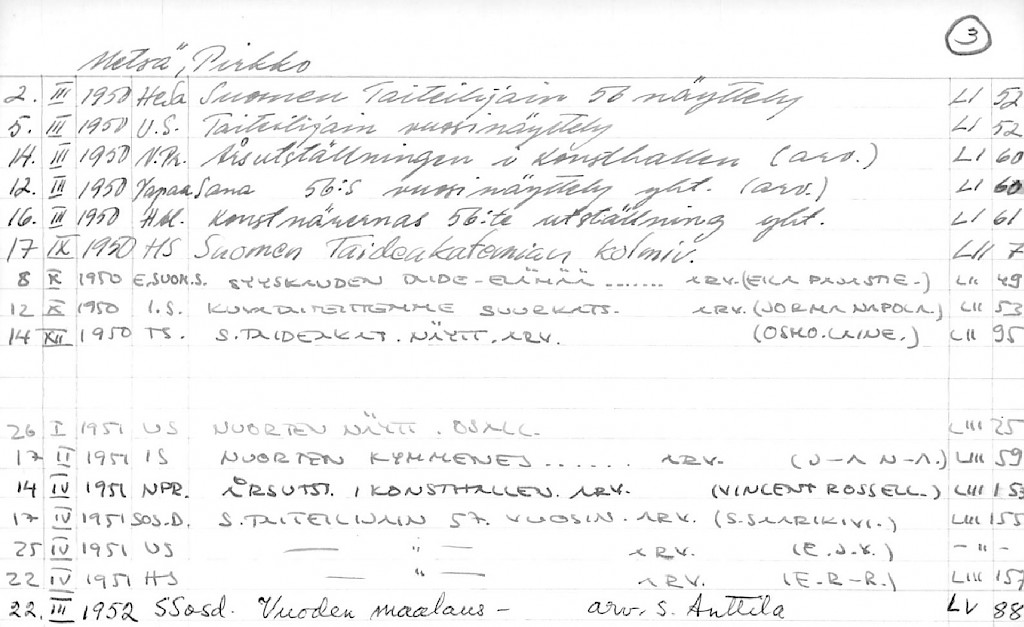 3
Metsä, Pirkko
2. III 1950 HeSa Suomen Taiteilijain 56 näyttely LI 52
5. III 1950 U.S. Taiteilijain vuosinäyttely LI 52
14. III 1950 N.Pr. Årsutställningen i Konsthallen (arv.) LI 60
12. III 1950 Vapaa Sana 56:s vuosinäyttely yht. (arv.) LI 60
16. III 1950 Hbl. Konstnärernas 56:te utställning yht. LI 61
17 IX 1950 HS Suomen Taideakatemian kolmiv. LII 7
8 X 1950 E.SUOM.S. SYYSKAUDEN TAIDE-ELÄMÄÄ ....... ARV. (EILA PAJASTIE.) LII 49
12 X 1950 I.S. KUVATAITEITTEMME SUURKATS. ARV. (JORMA NAPOLA.) LII 53
14 XII 1950 TS. S.TAIDEAKAT. NÄYTT. ARV. (OSMO.LAINE.) LII 95
26 I 1951 US NUORTEN NÄYTT. OSALL. LIII 25
17 II 1951 IS NUORTEN KYMMENES ....... ARV. (J-A N-A.) LIII 59
14 IV 1951 NPR. ÅRSUTST. I KONSTHALLEN. ARV. (VINCENT ROSSELL.) LIII 153
17 IV 1951 SOS.D. S.TAITEILIJAIN 57. VUOSIN. ARV. (S.SAARIKIVI.) LIII 155
25 IV 1951 US — " — ARV. (E.J.V.) – " –
22 IV 1951 HS — " — ARV. (E.R-R.) LIII 157
22. III 1952 SSosd. Vuoden maalaus – arv. S. Anttila LV 88